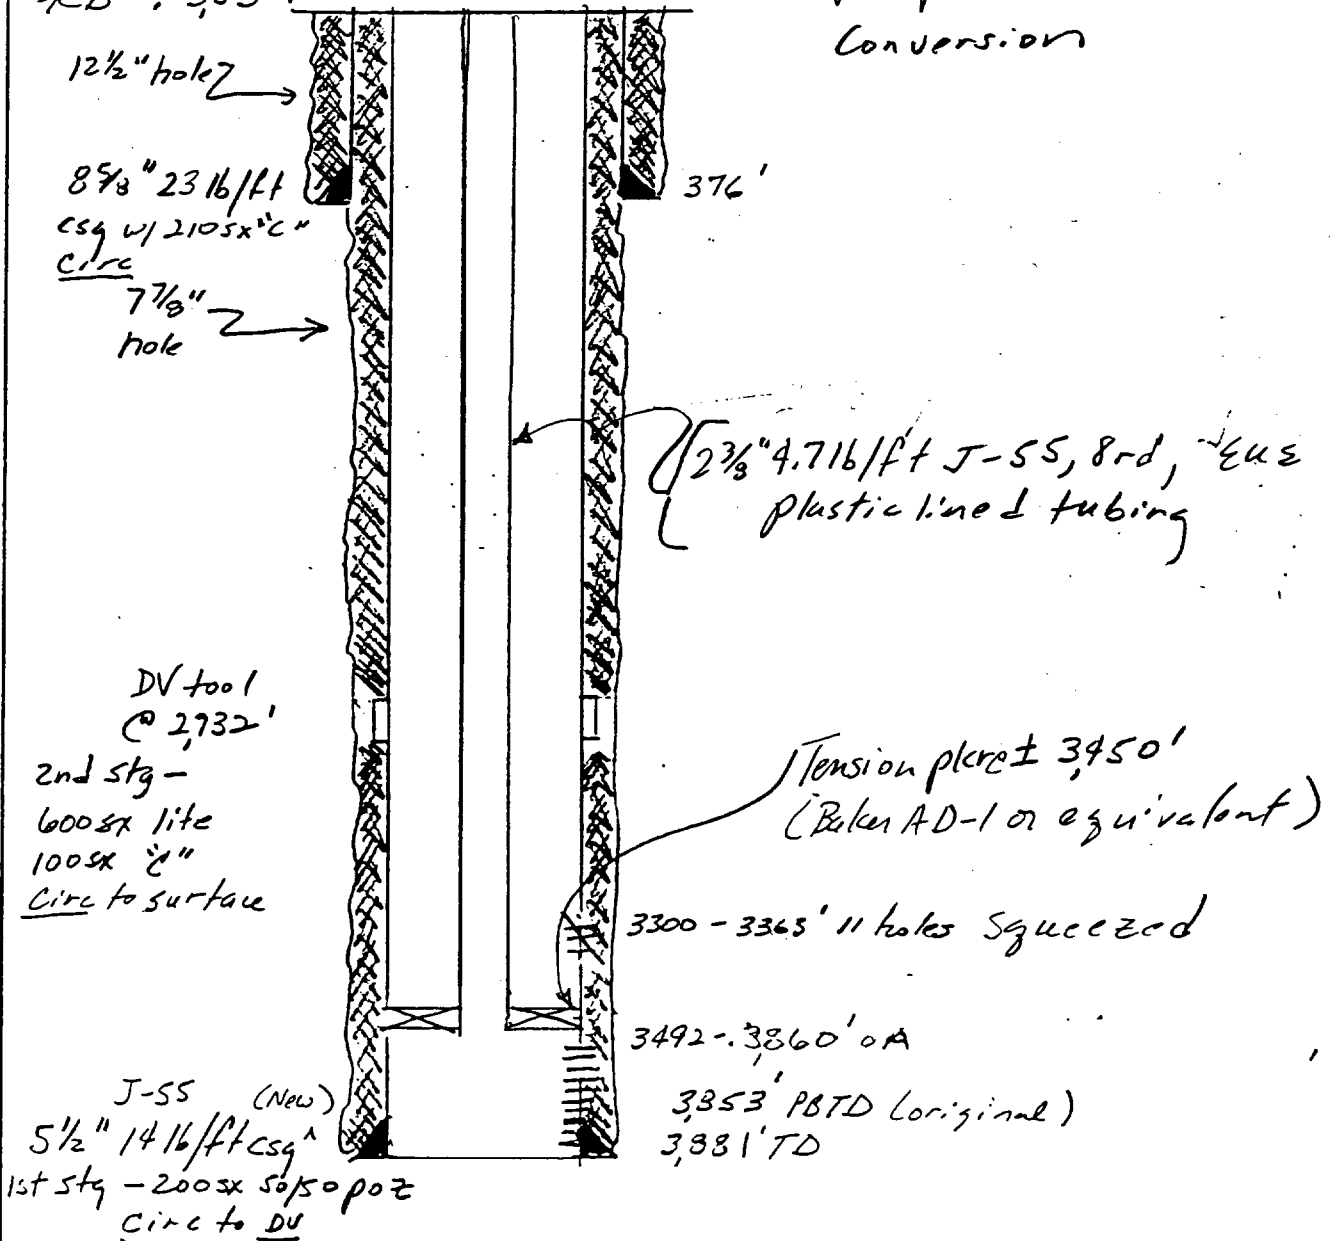 Conversion
12½" hole
8⅝" 23 lb/ft
csg w/ 210sx "C"
Circ
376'
7⅞"
hole
2⅜" 4.7 lb/ft J-55, 8rd, EUE
plastic lined tubing
DV tool
@ 2,932'
2nd stg -
600sx lite
100sx "C"
Circ to surface
Tension pkr @ ± 3,450'
(Baker AD-1 or equivalent)
3300 - 3363' 11 holes squeezed
3492 - 3,860' OA
3,853' PBTD (original)
3,881' TD
J-55 (New)
5½" 14 lb/ft csg ^
1st stg - 200sx 50/50 poz
Circ to DV